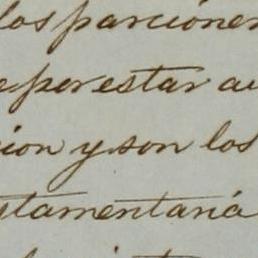 los parcioner
e por estar au
cion y son los
stamentaria